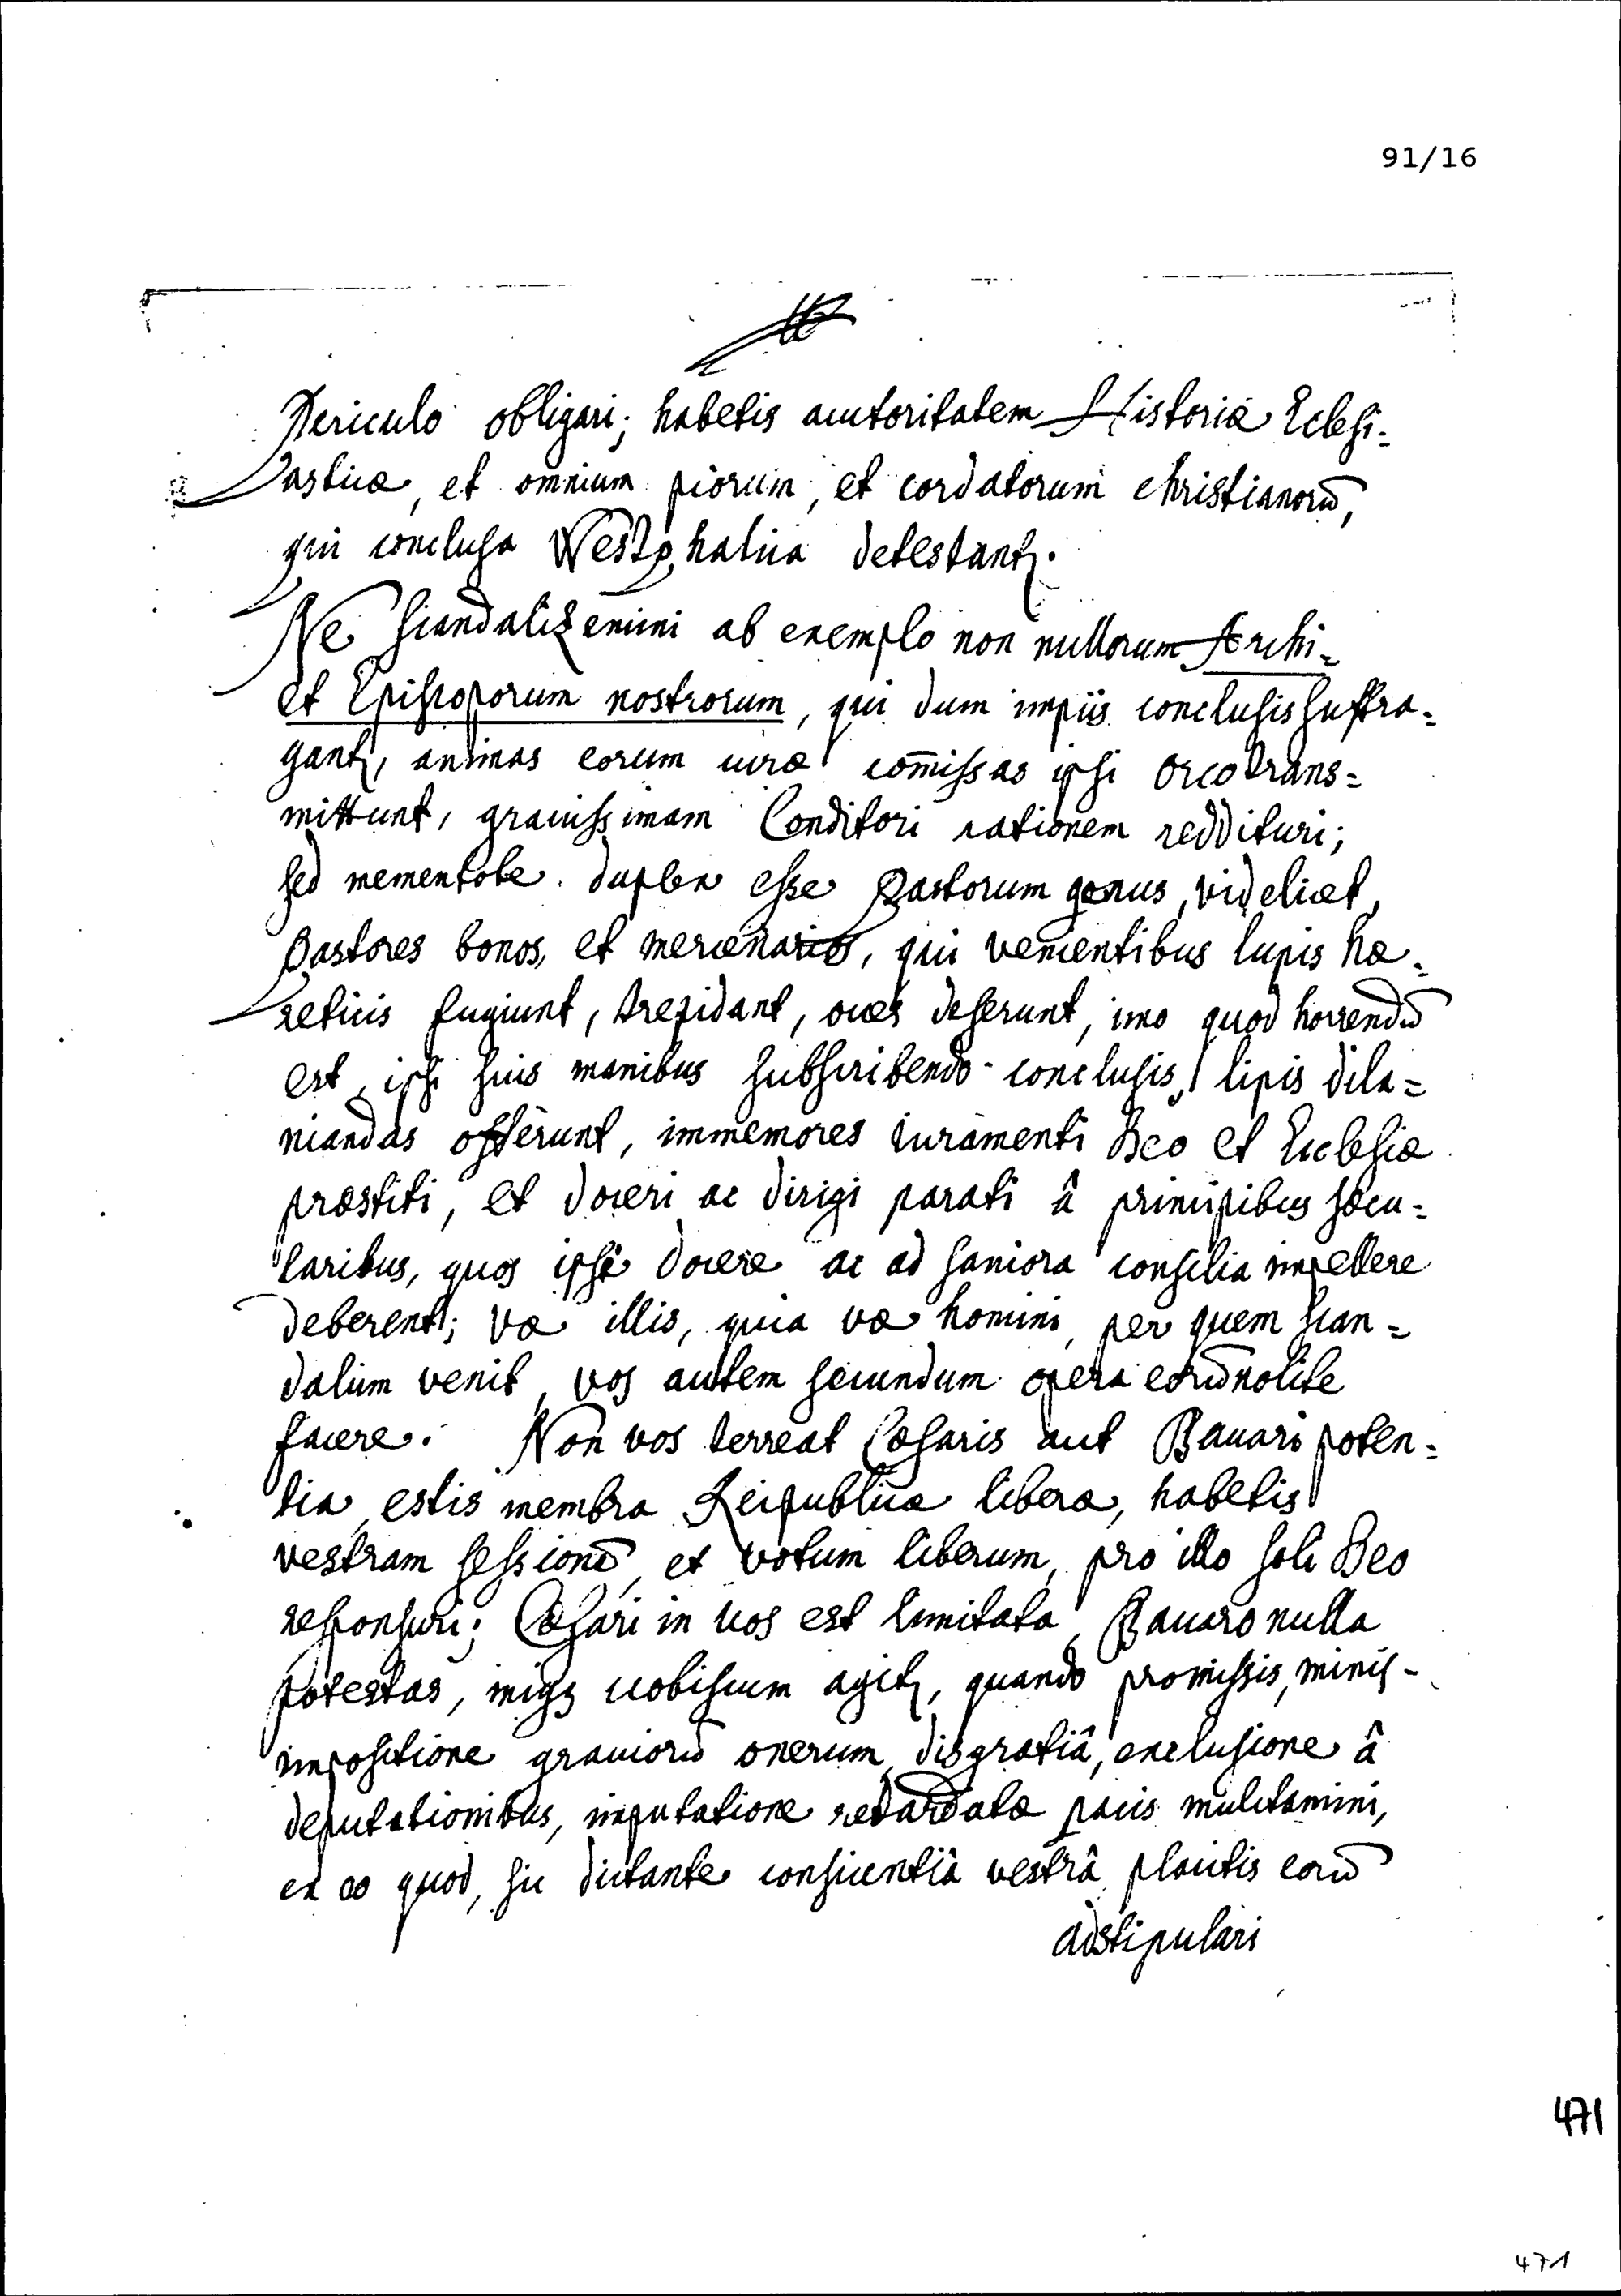 91/16
Periculo obligari; habetis auctoritatem Historiæ Eclesi=
asticæ, et omnium piorum, et cordatorum christianorũ,
qui conclusa Westphalica detestantr.
Ne scandalizemini ab exemplo non nullorum Archi=
et Episcoporum nostrorum, qui dum impiis conclusis suffra=
gantr, animas eorum curæ com̄issas ipsi orco trans=
mittunt, grauissimam Conditori rationem reddituri;
sed mementote duplex esse Pastorum genus, videlicet,
Pastores bonos, et mercenarios, qui venientibus lupis hæ=
reticis fugiunt, trepidant, oues deserunt, imo quod horrendũ
est, ipsi suis manibus subscribendo conclusis, lupis dila=
niandas offerunt, immemores iuramenti Deo et Ecclesiæ
præstiti, et doceri ac dirigi parati â principibus sæcu=
laribus, quos ipsi docere ac ad saniora consilia impellere
deberent; væ illis, quia væ homini, per quem scan=
dalum venit, vos autem secundum opera eorũ nolite
facere. Non vos terreat Cæsaris aut Bauari poten=
tia, estis membra Reipublicæ liberæ, habetis
vestram sessionẽ, et votum liberum, pro illo soli Deo
responsuri; Cæsari in uos est limitata, Bauaro nulla
potestas, iniq3 uobiscum agitr, quando promissis, minis
impositione grauiorũ onerum, disgratiâ, exclusione â
deputationibus, imputatione retardatæ pacis mulctamini,
ex eo quod, sic dictante conscientiâ vestrâ, placitis eorũ
adstipulari
471
471